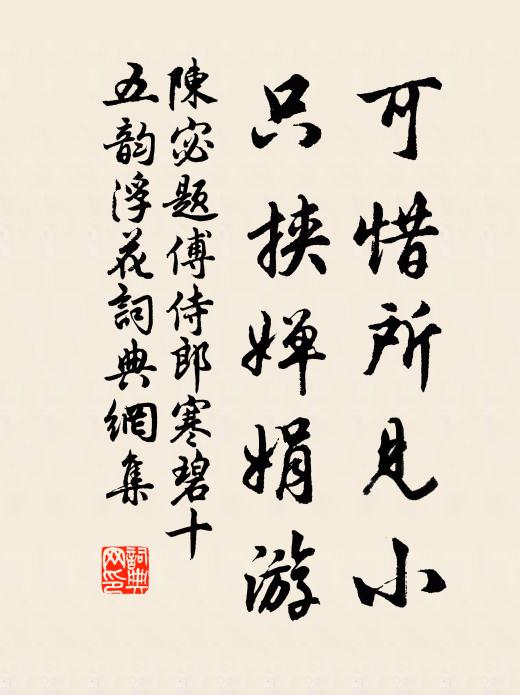 可惜所见小
只挟婵娟游
陳宓題傅侍郎寒碧十
五韵浮花詞典網集
詞典网印